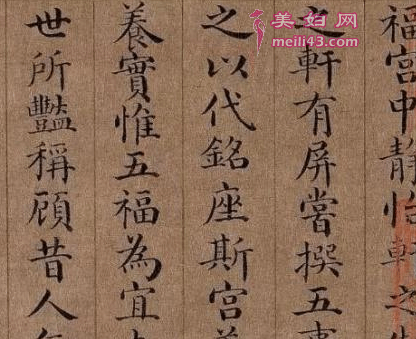 福宮中靜怡軒之
之軒有屏嘗撰五
之以代銘座斯宮
養實惟五福為宜
世所豔稱顧昔人
美妇网
meili43.com